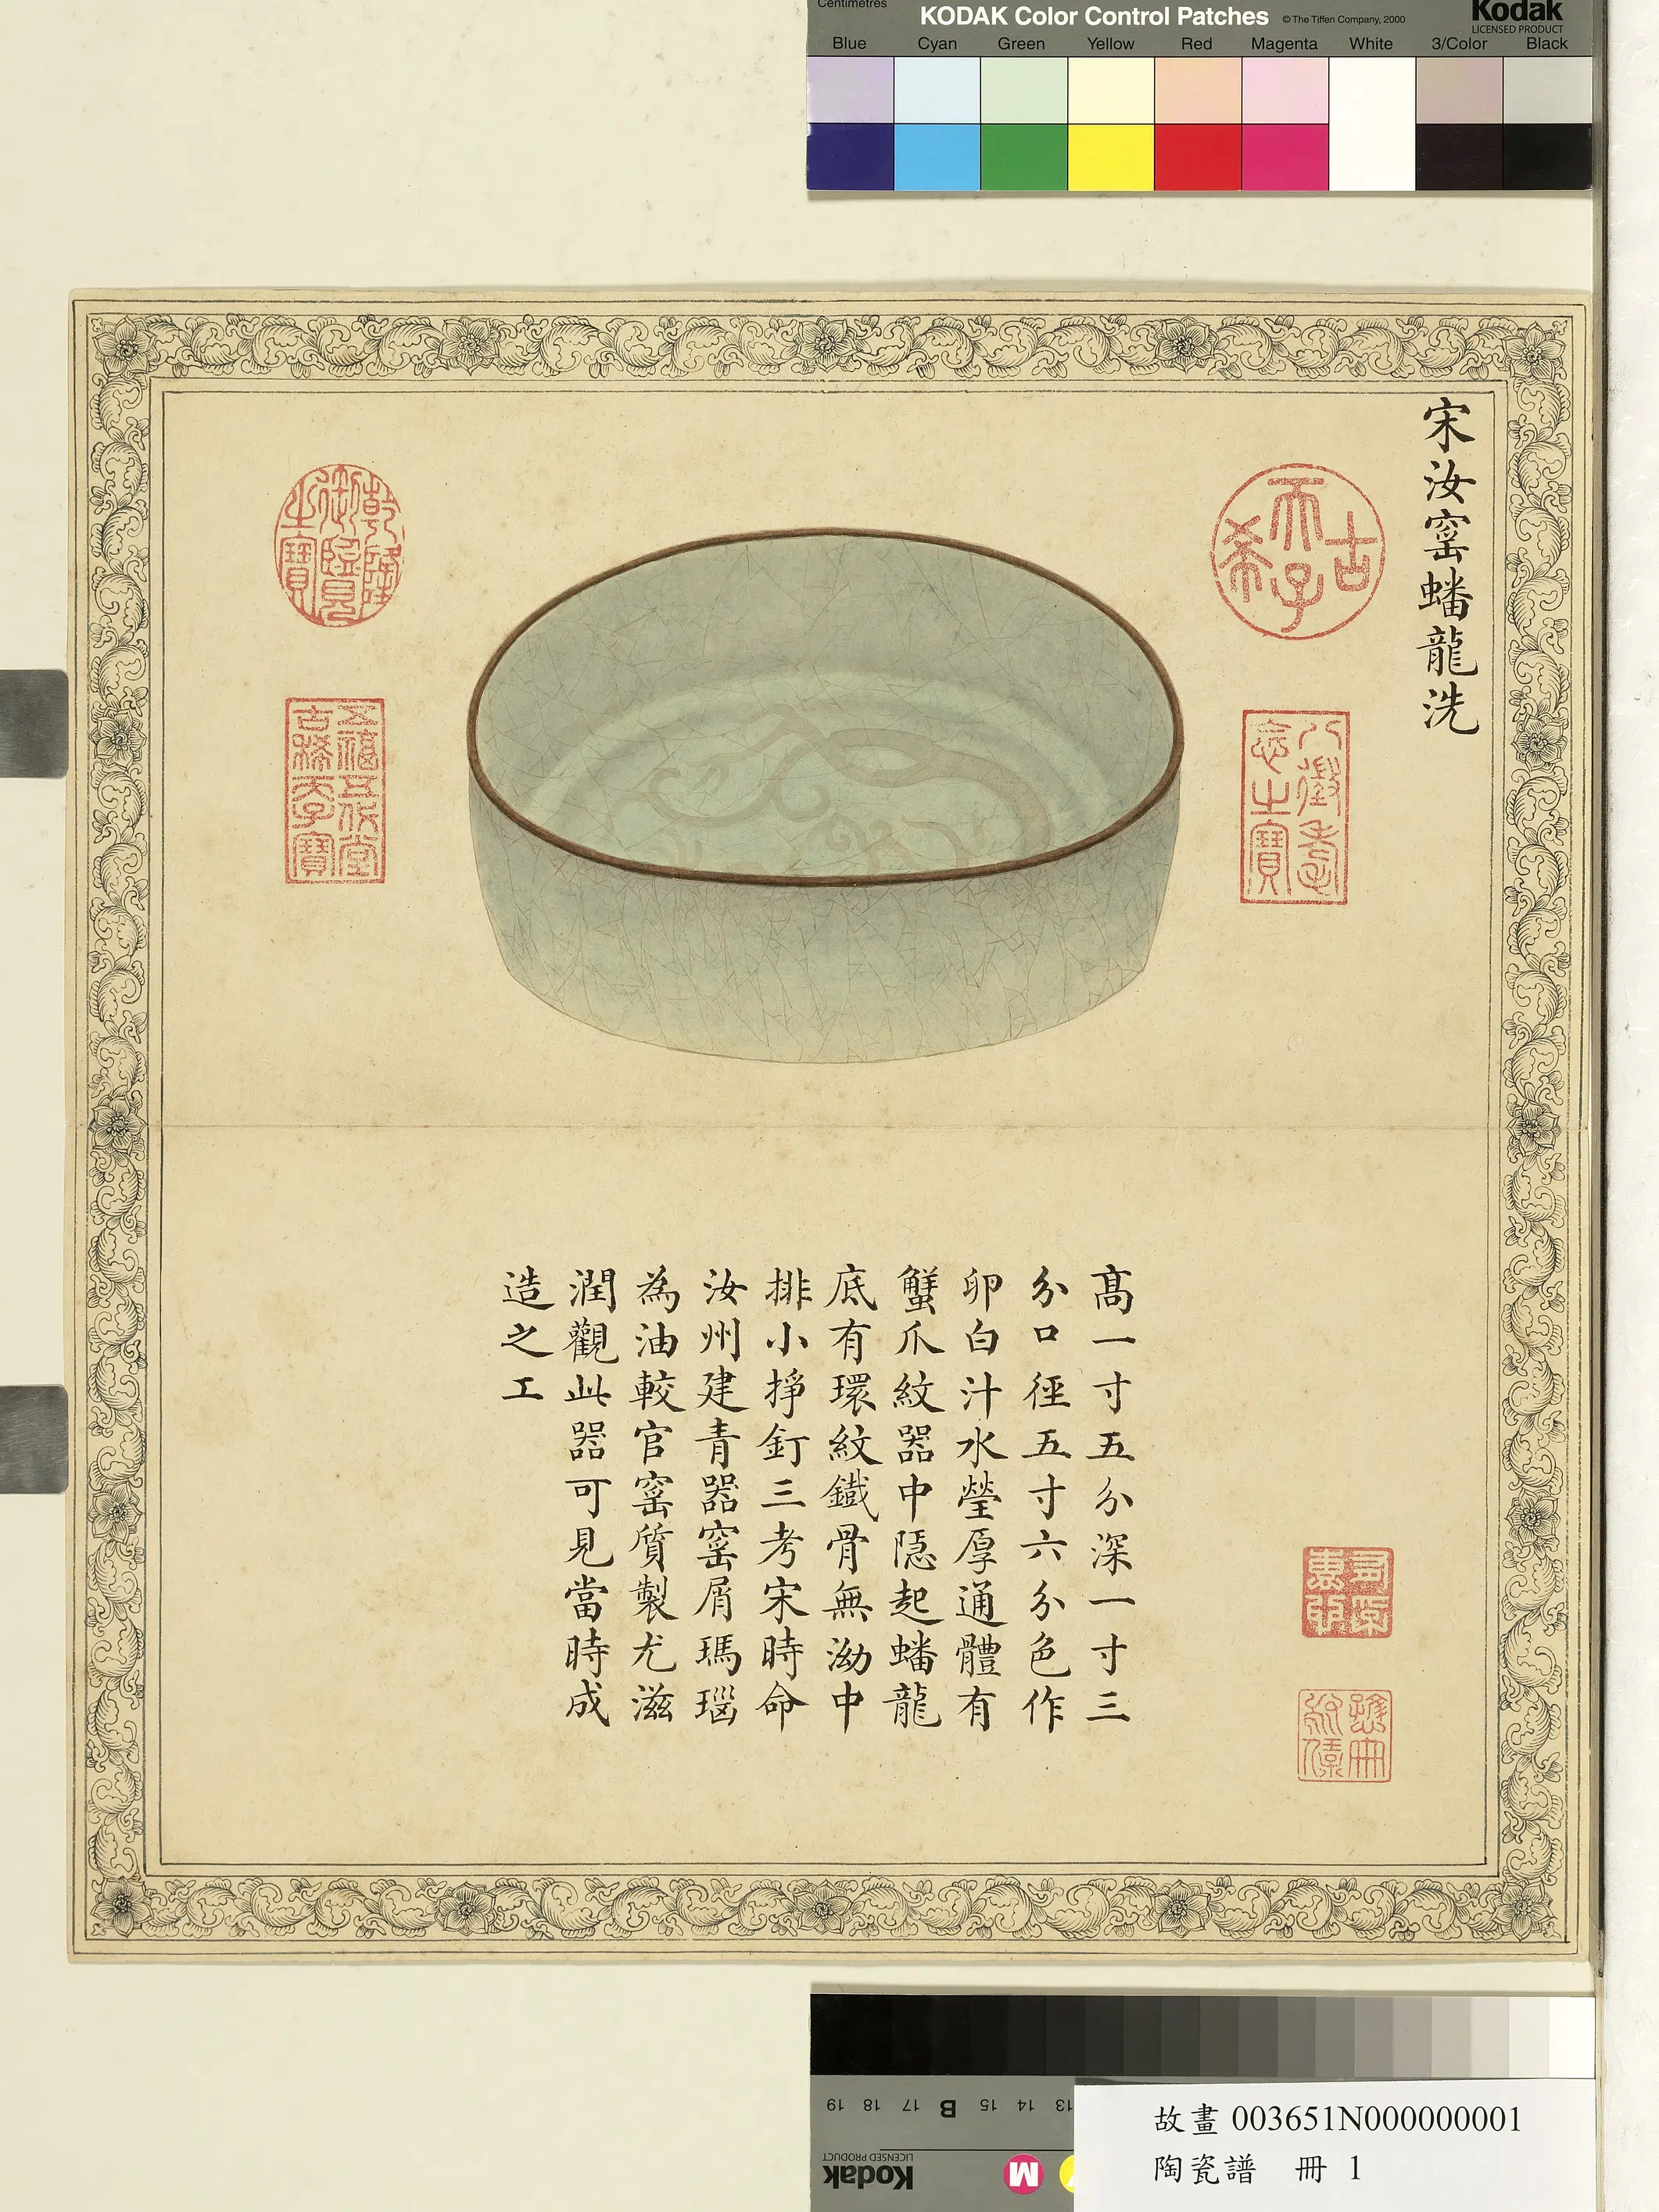 Centimetres
KODAK Color Control Patches © The Tiffen Company, 2000
Kodak
LICENSED PRODUCT
Blue Cyan Green Yellow Red Magenta White 3/Color Black
宋汝窰蟠龍洗
古希天子
八徵耄念之寶
乾隆御覽之寶
五福五代堂古稀天子寶
高一寸五分深一寸三
分口徑五寸六分色作
卵白汁水瑩厚通體有
蟹爪紋器中隱起蟠龍
底有環紋鐵骨無泑中
排小掙釘三考宋時命
汝州建青器窰屑瑪瑙
為油較官窰質製尤滋
潤觀此器可見當時成
造之工
19 18 17 B 15 14 13
Kodak
LICENSED PRODUCT
M
故畫 003651N000000001
陶瓷譜 冊 1